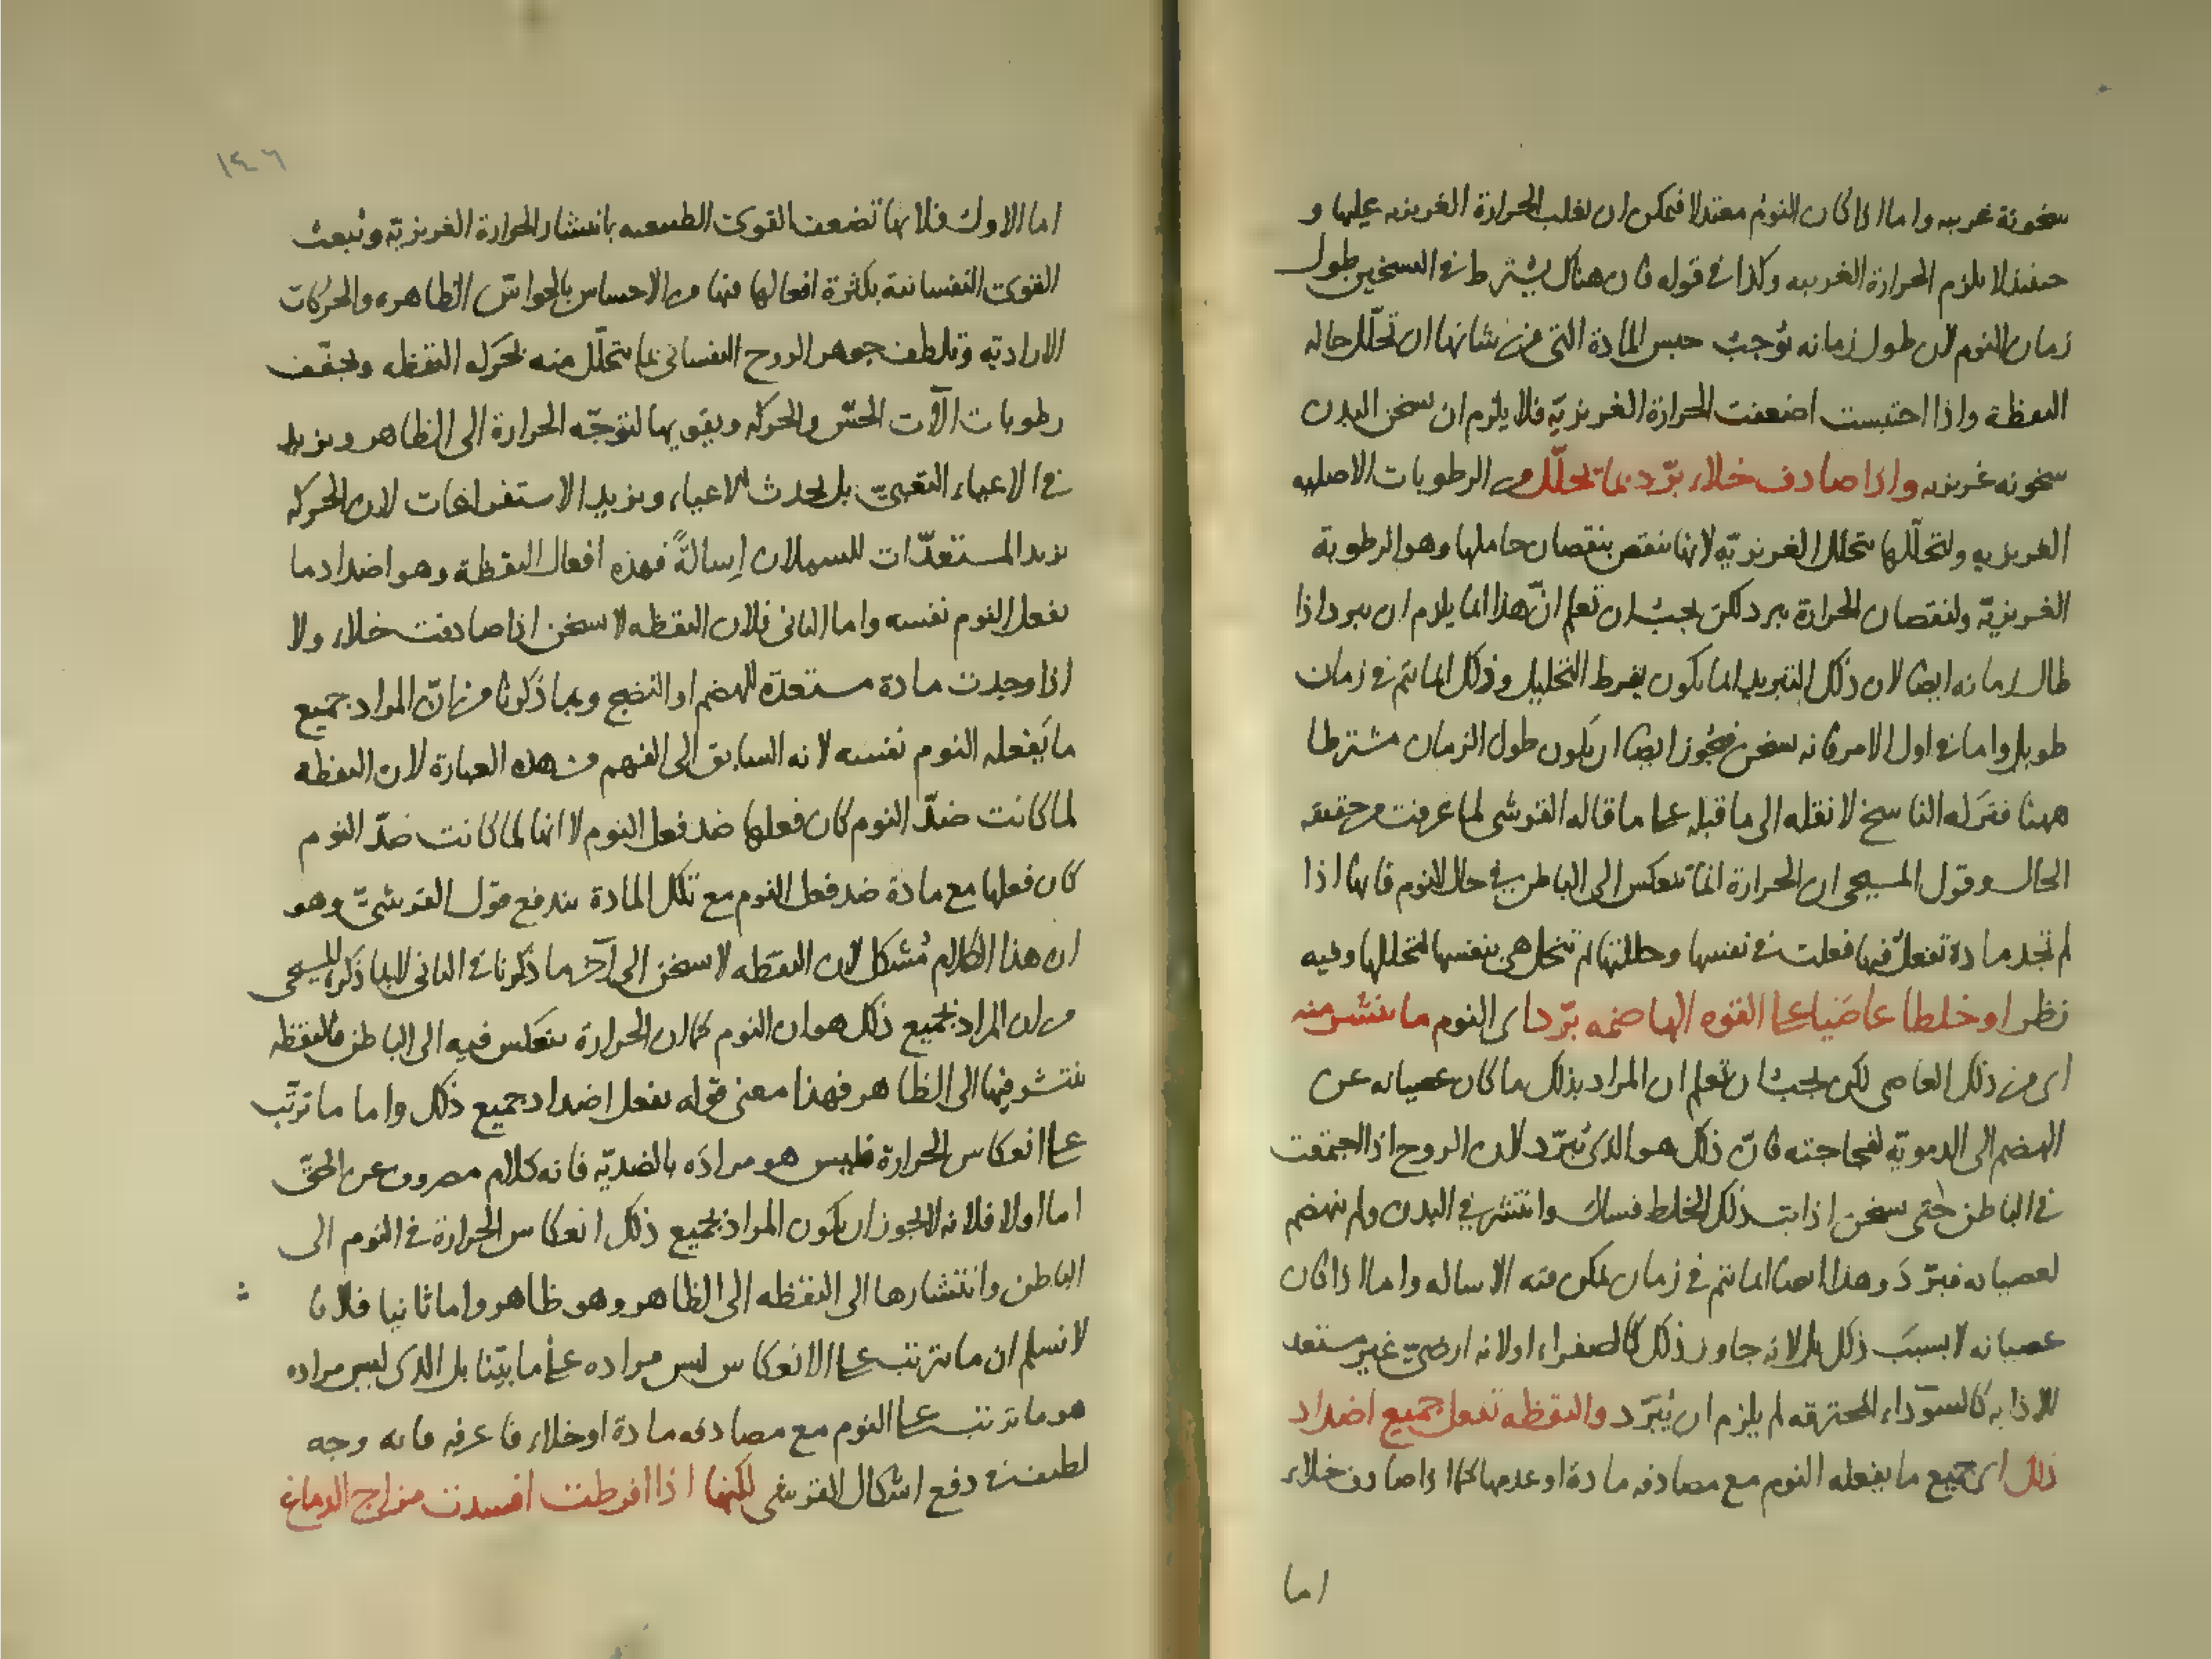 سخونة غريبه واما اذا كان النوم معتدلا فيمكن ان تغلب الحرارة الغريزيه عليها و
حينئذ لا يلزم الحرارة الغريبه وكذا في قوله فان هناك يشترط في التسخين طول
زمان النوم لان طول زمانه توجب حبس المادة التي من شانها ان تحلّل حاله
اليقظة واذا احتبست اضعفت الحرارة الغريزيّه فلا يلزم ان سخن البدن
سخونه غريزيه واذا صادف خلاء برّد بما تحلّل من الرطوبات الاصليه
الغريزيه ولتحلّلها تتحلل الغريزيّه لانها تنقص بنقصان حاملها وهو الرطوبة
الغريزيّة ولنقصان الحرارة يبرد لكن يجب ان تعلم انّ هذا انما يلزم ان يبرد اذا
طال زمانه ايضا لان ذلك التبريد انما يكون بفرط التحليل وذلك انما يتم في زمان
طويل واما في اول الامر فانه سخن فيجوز ايضا ان يكون طول الزمان مشترطا
ههنا فتركه الناسخ لا نقله الى ما قبله على ما قاله القرشي لما عرفت من حقيقه
الحال وقول المسيحي ان الحرارة انما تنعكس الى الباطن في حال النوم فانها اذا
لم تجد مادة تفعل فيها فعلت في نفسها وحللتها لم تتحلل هي بنفسها لتحللها وفيه
نظر او خلطا عاصيا على القوه الهاضمه برّد اي النوم ما ينتشر منه
اي من ذلك العاصي لكن يجب ان تعلم ان المراد بذلك ما كان عصيانه عن
الهضم الى الدمويّه لفجاجته فانّ ذلك هو الذي يُبرّد لان الروح اذا اجتمعت
في الباطن حتى سخن اذابت ذلك الخلط فسال وانتشر في البدن ولم ينهضم
لعصيانه فبرّدَ وهذا ايضا انما يتم في زمان يمكن فيه الاساله واما اذا كان
عصيانه لا بسببَ ذلك بل لانه جاوز ذلك كالصفراء او لانه ارضيّ غير مستعد
للاذابه كالسوداء المحترقه لم يلزم ان يُبرّد واليقظه تفعل جميع اضداد
ذلك اي جميع ما يفعله النوم مع مصادفه مادة او عدمها كما اذا صادف خلاء
اما
١٤٦
اما الاول فلانها تضعف القوى الطبيعيه بانتشار الحرارة الغريزيّه وتبعث
القوى النفسانية بكثرة افعالها فيها من الاحساس بالحواسّ الظاهره والحركات
الاراديّه وتلطف جوهر الروح النفساني بما يتحلّل منه بحركه اليقظه وتجفّف
رطوبات آلات الحسّ والحركه ويقويها لتوجّه الحرارة الى الظاهر ويزيد
في الاعياء التعبيّ بل يحدث الاعياء ويزيد الاستفراغات لان الحركه
يزيد المستعدّات للسيلان إسالةً فهذه افعال اليقظة وهو اضداد ما
يفعل النوم نفسه واما الثاني فلان اليقظه لا سخن اذا صادفت خلاء ولا
اذا وجدت مادة مستعدّه للهضم او النضج وبما ذكرنا من انّ المراد جميع
ما يَفعله النوم نفسه لانه السابق الى الفهم من هذه العبارة لان اليقظه
لما كانت ضدّ النوم كان فعلها ضد فعل النوم لا انها لما كانت ضدّ النوم
كان فعلها مع مادة ضد فعل النوم مع تلك المادة يندفع قول القرشيّ وهو
ان هذا الكلام مُشكل لان اليقظه لا سخن الى آخر ما ذكرنا في الثاني لا بما ذكره المسيحي
من ان المراد بجميع ذلك هو ان النوم كما ان الحرارة ينعكس فيه الى الباطن فاليقظه
ينتشر فيها الى الظاهر فهذا معنى قوله تفعل اضداد جميع ذلك واما ما ترتّب
على انعكاس الحرارة فليس هو مرادَه بالضديّه فانه كلام مصروف عن الحقّ
اما اولا فلانه لا يجوز ان يكون المراد بجميع ذلك انعكاس الحرارة في النوم الى
الباطن وانتشارها الى اليقظه الى الظاهر وهو ظاهر واما ثانيا فلانا
لا نسلم ان ما يترتب على الانعكاس ليس مراده على ما بيّنا بل الذي ليس مراده
هو ما ترتب على النوم مع مصادفه مادة او خلاء فاعرفه فانه وجه
لطيف في دفع اشكال القرشي لكنها اذا افرطت افسدت مزاج الدماغ